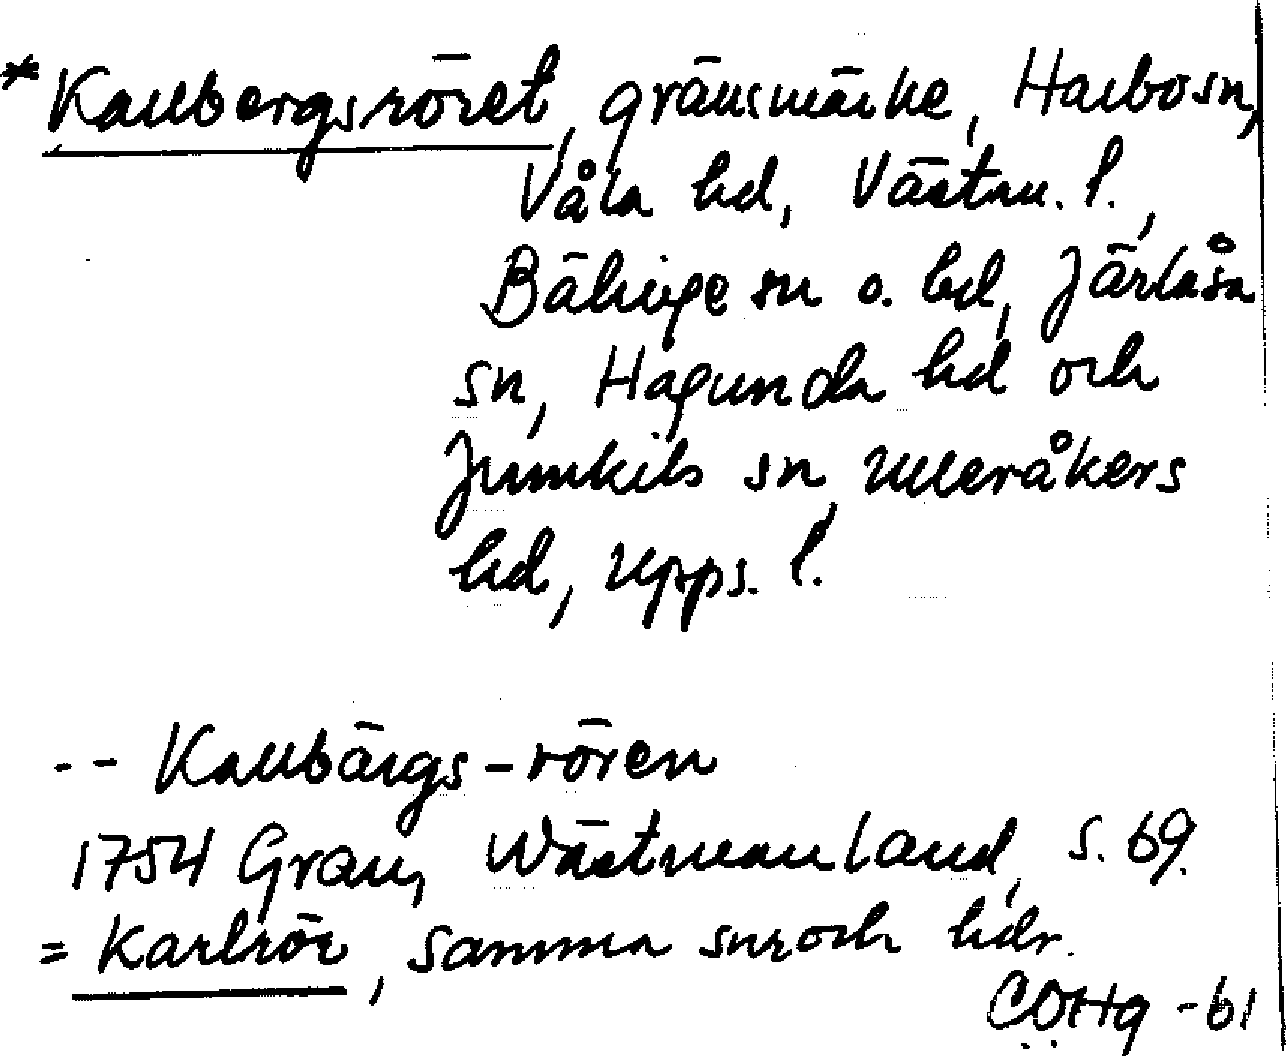 *Kallbergsröret, gränsmärke, Harbo sn,
Våla hd, Västm. l.,
Bälinge sn o. hd, Järlåsa
sn, Hagunda hd och
Jumkils sn, Ulleråkers
hd, Upps. l.
-- Kallbärgs-rören
1754 Grau, Wästmanland, s. 69.
= Karlrör, samma snr och hdr.
CÖHg -61